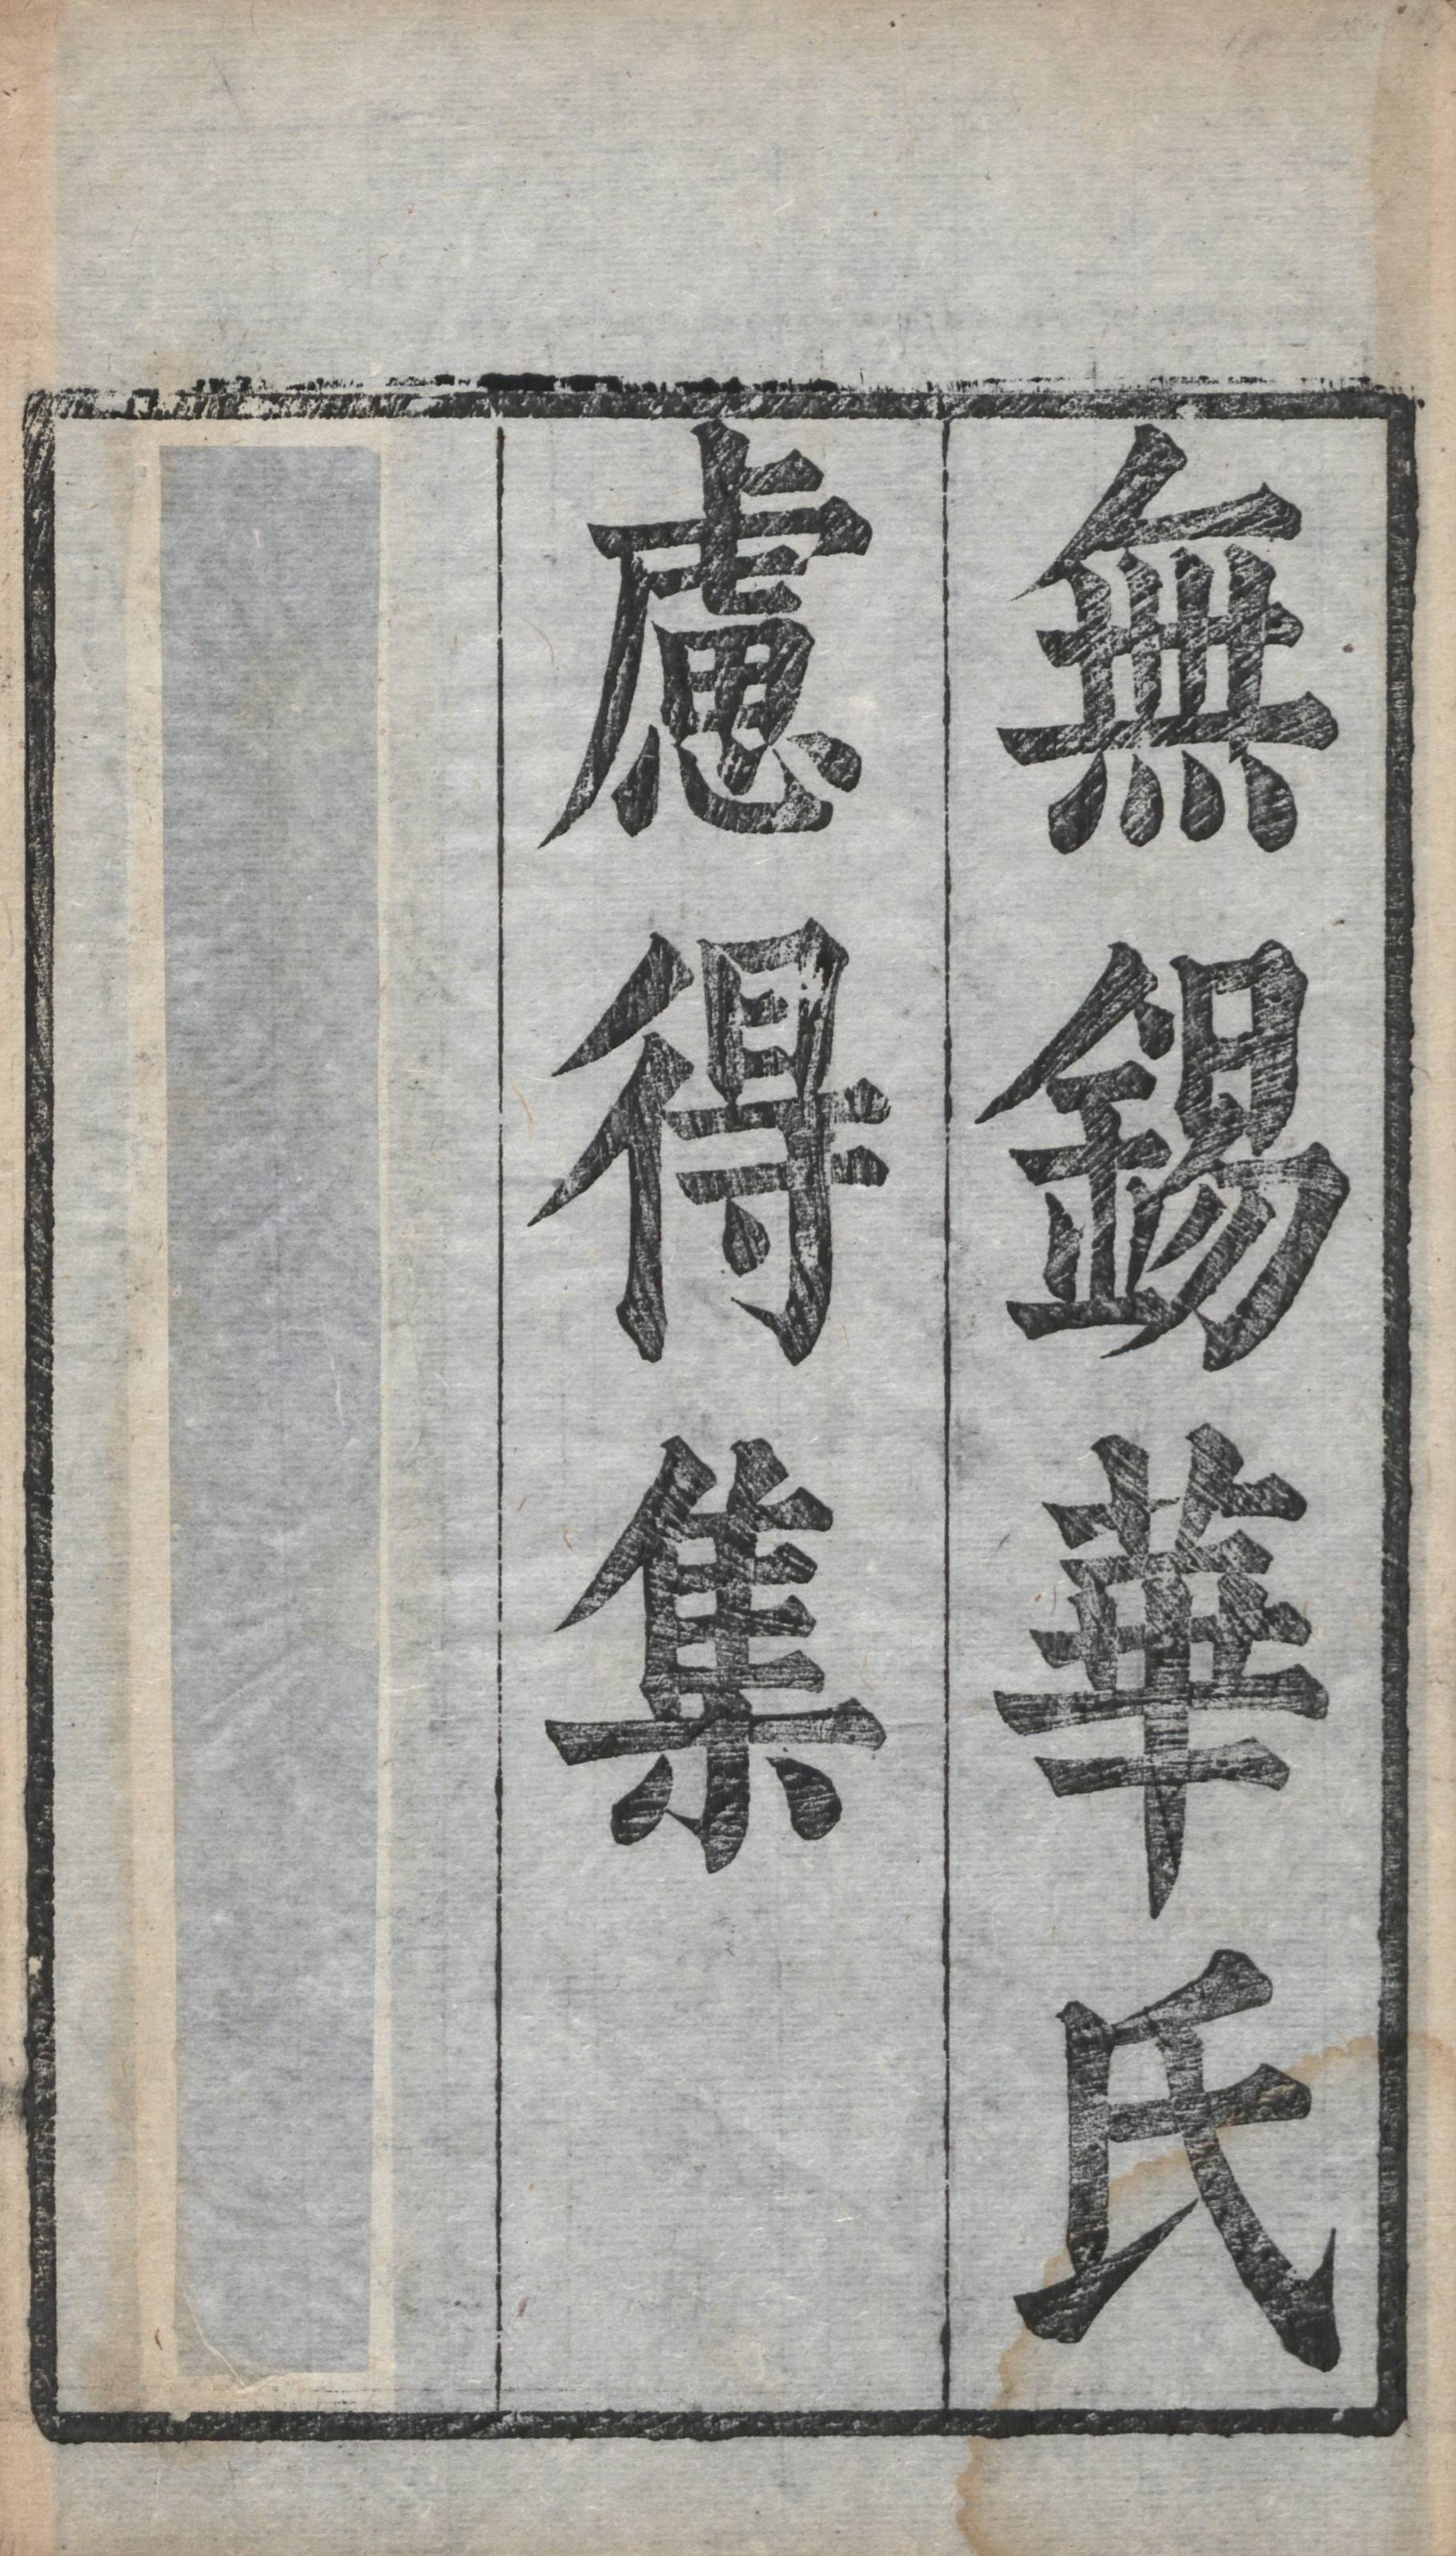 無錫華氏
慮得集